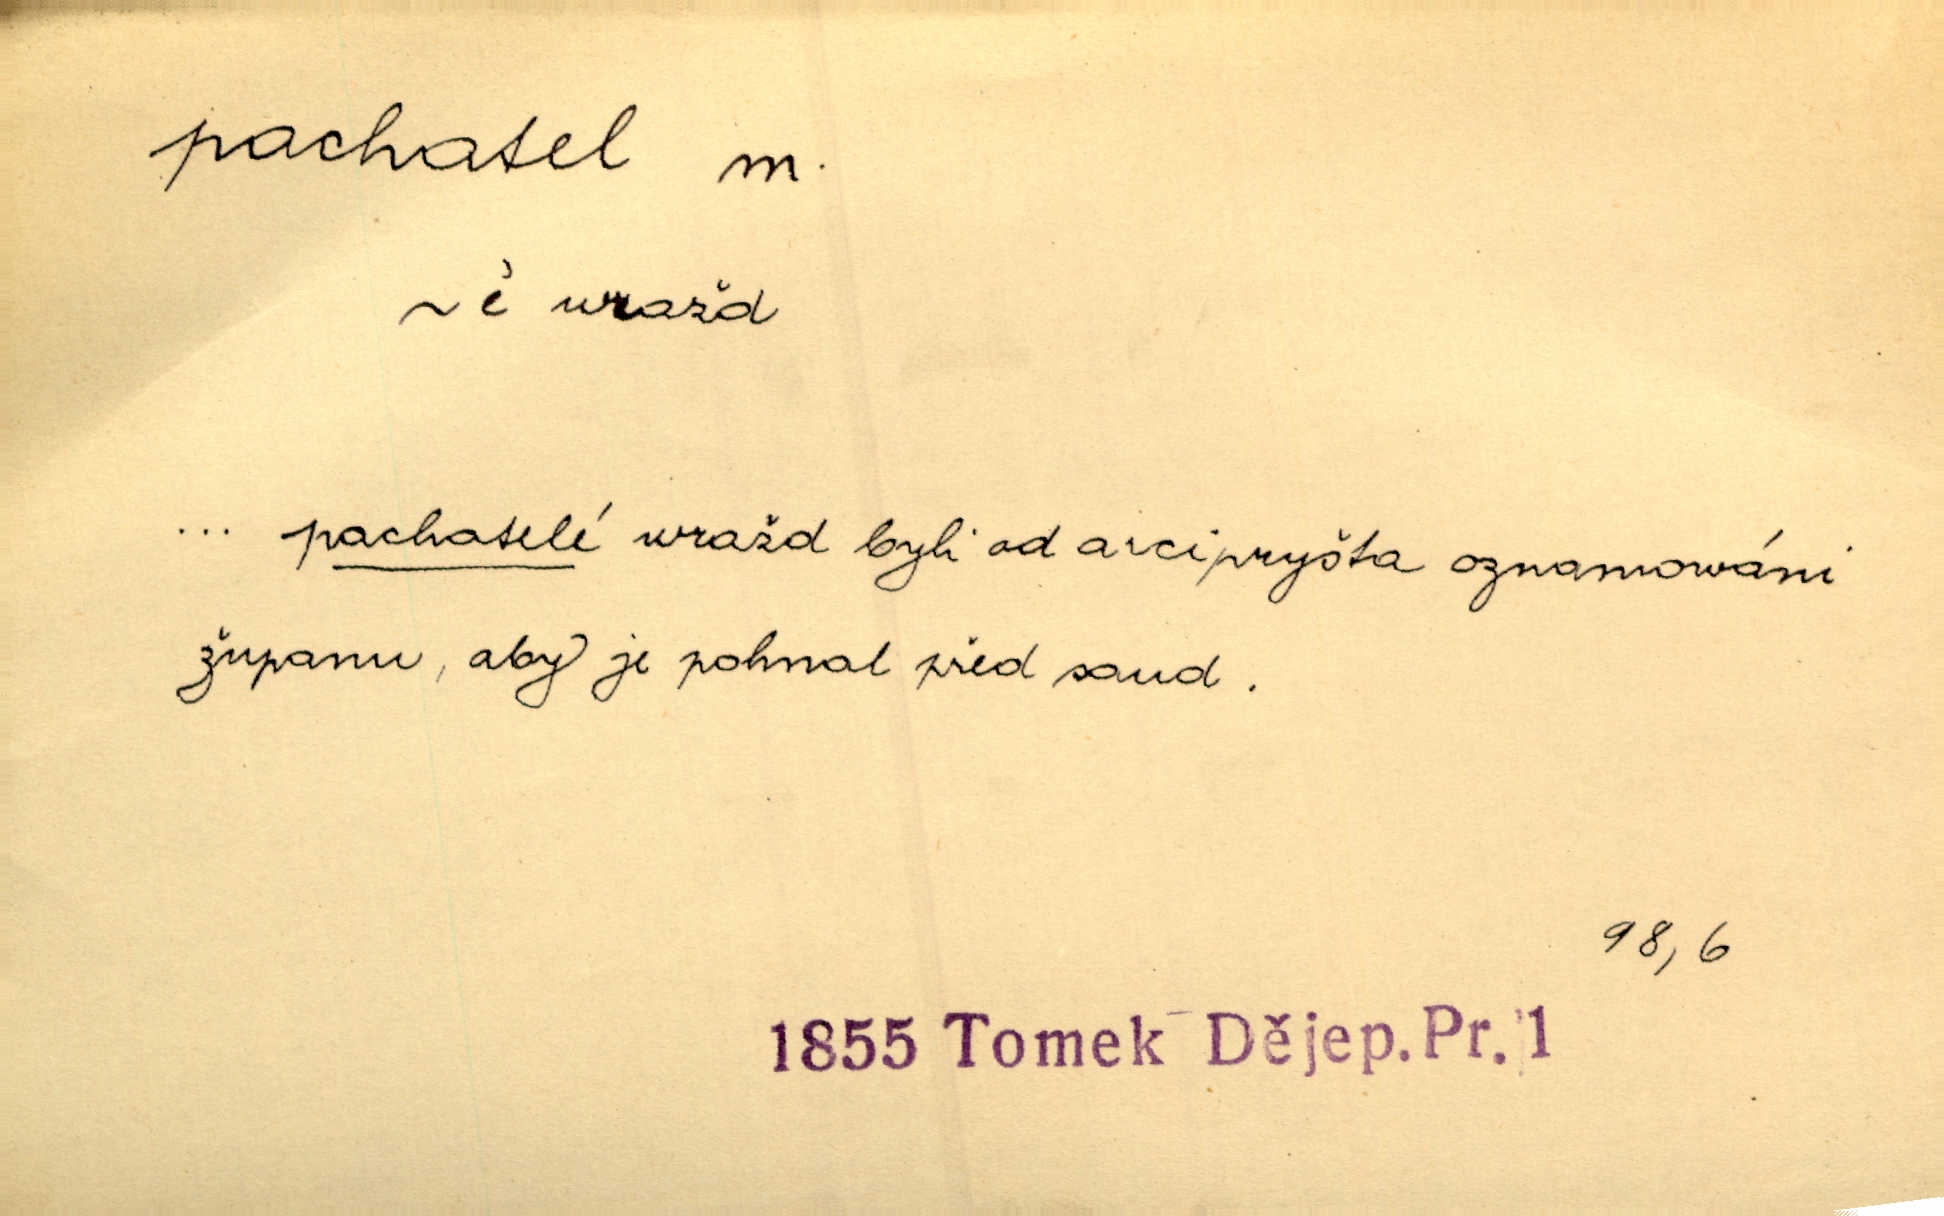 pachatel m.
~é wražd
... pachatelé wražd byli od arcipryšta oznamowáni
županu, aby je pohnal před saud.
98,6
1855 Tomek Dějep. Pr. 1